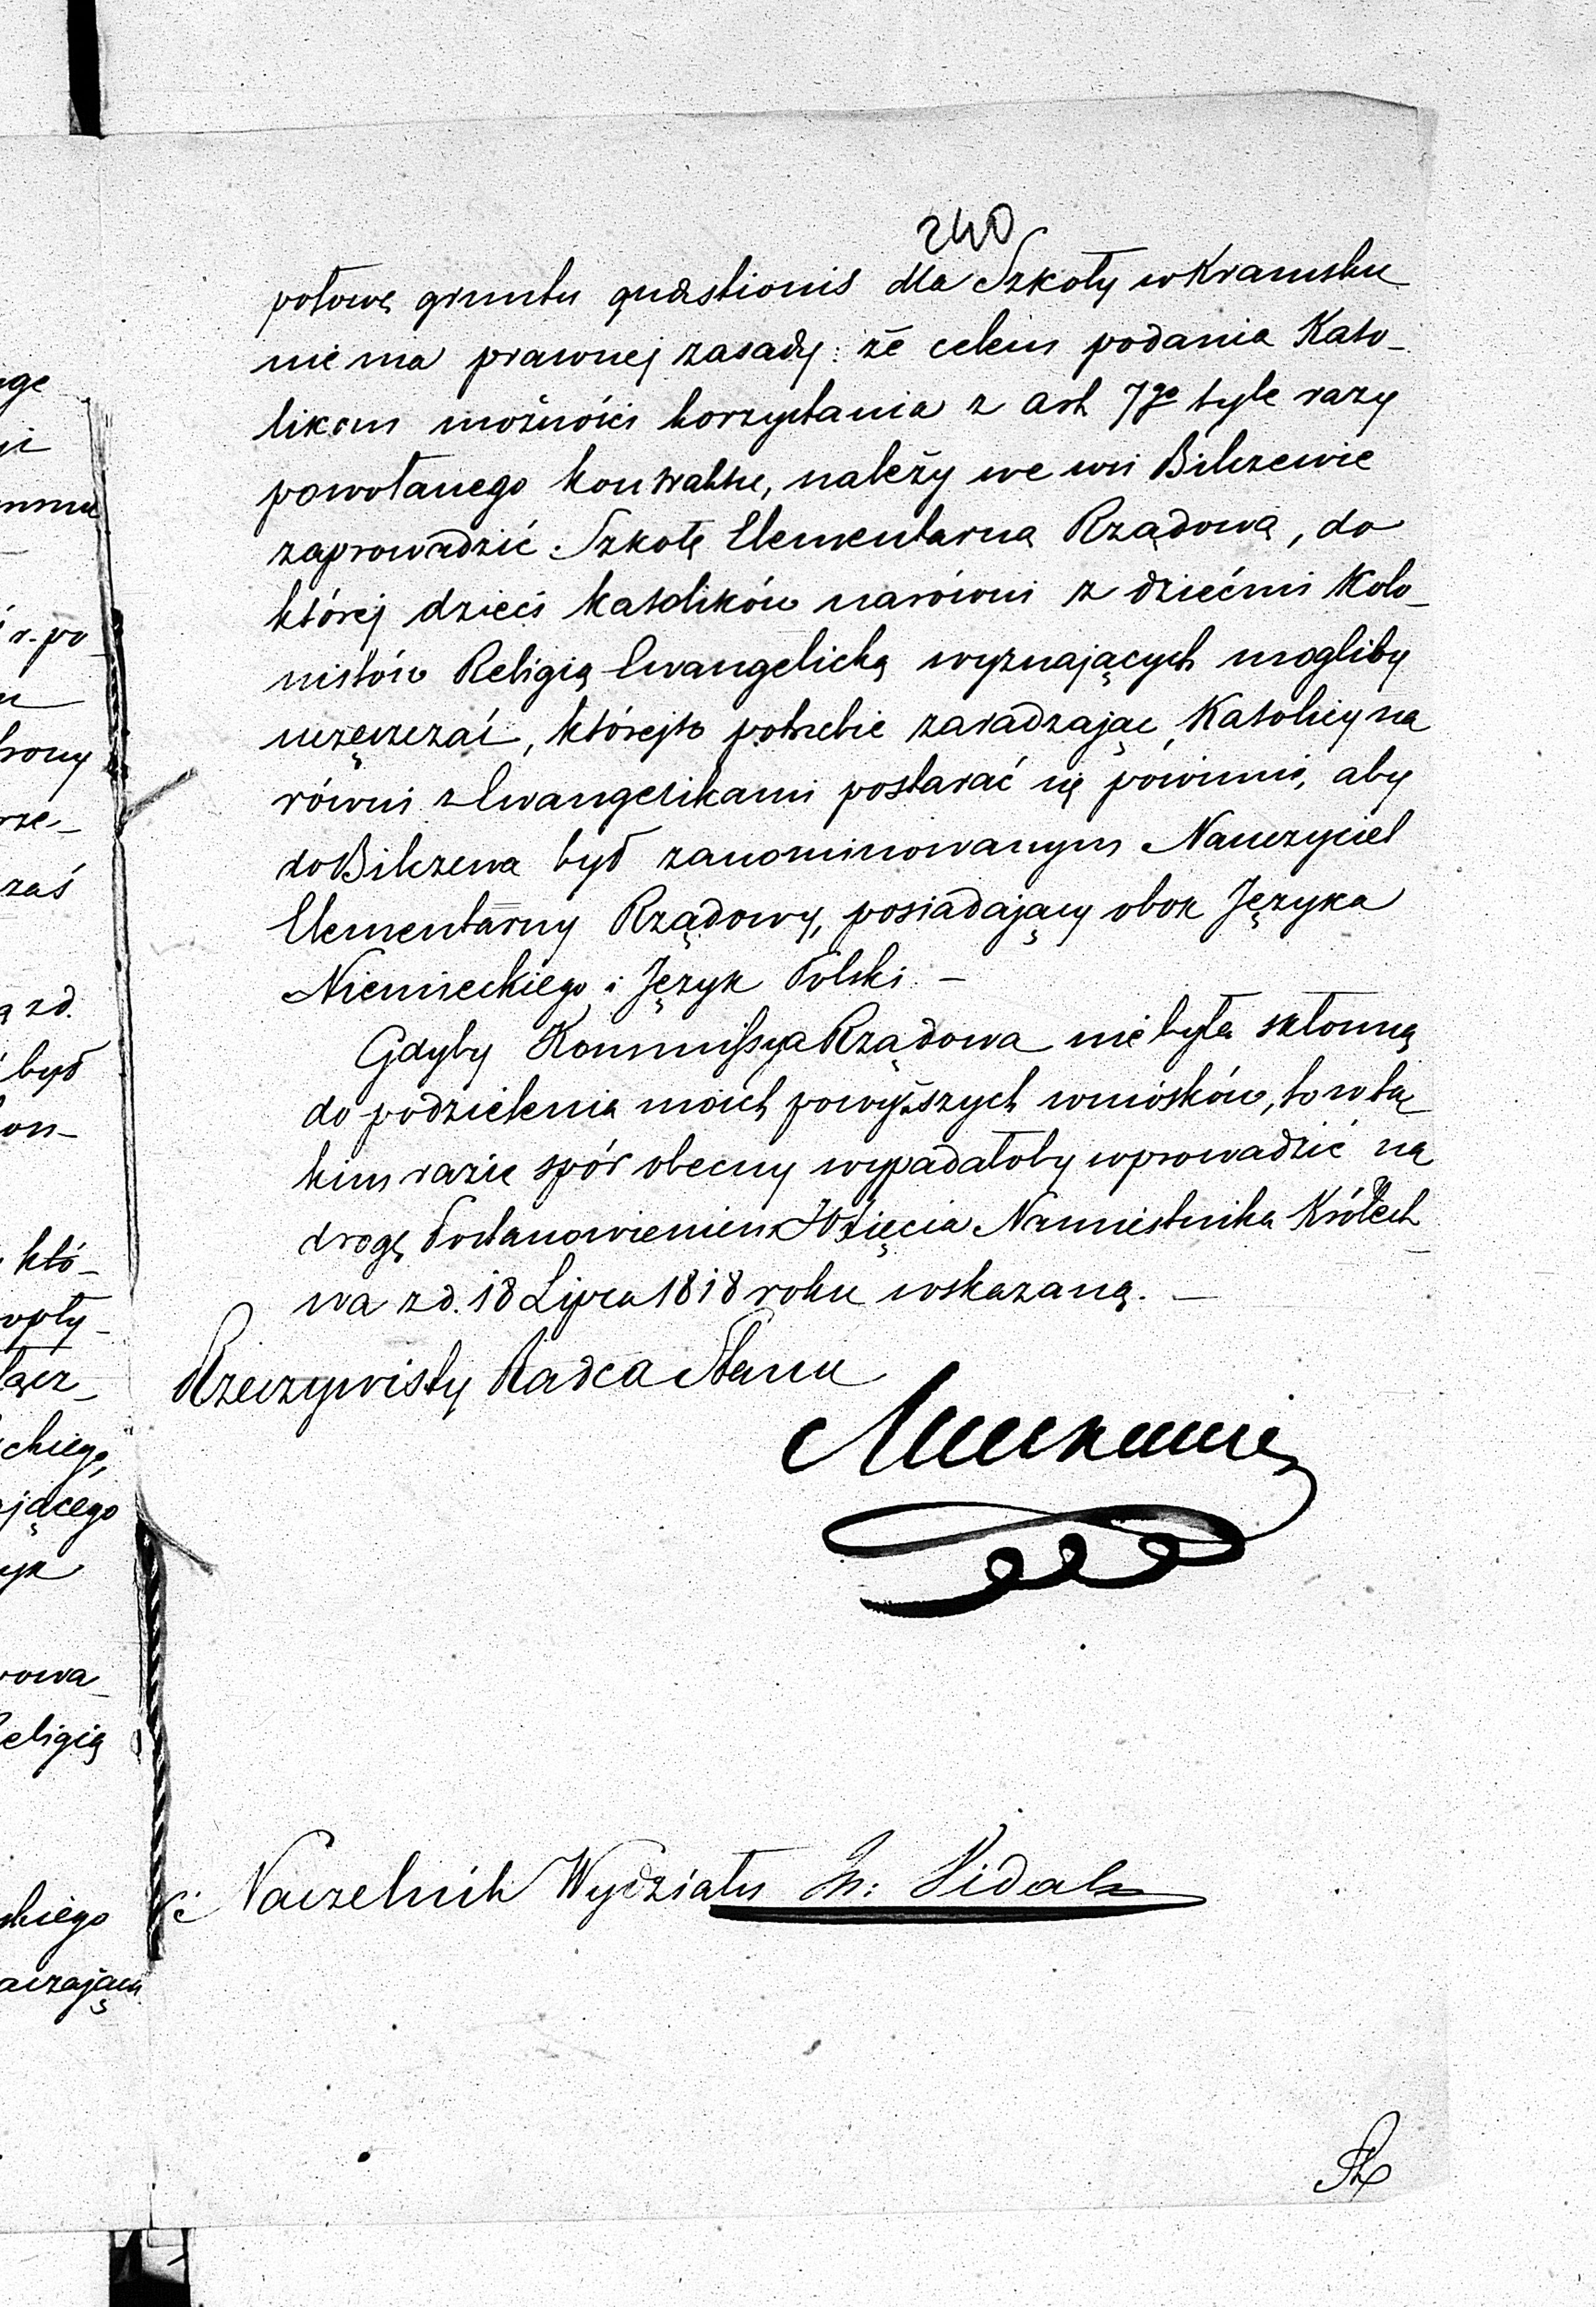 240
połowę gruntu quæstionis dla Szkoły w Kramsku
nie ma prawnej zasady: że celem podania Kato-
likom możności korzystania z art 7go tyle razy
powołanego kontraktu, należy we wsi Bilczewie
zaprowadzić Szkołę Elementarną Rządową, do
której dzieci katolików narówni z dziećmi Kolo-
nistów Religią Ewangelicką wyznających mogliby
uczęszczać, którejto potrzebie zaradzając, Katolicy na
równi z Ewangelikami postarać się powinni, aby
do Bilczewa był zanominowanym Nauczyciel
Elementarny Rządowy, posiadający obok Języka
Niemieckiego i Język Polski. –
Gdyby Kommissya Rządowa nie była skłonną
do podzielenia moich powyższych wniosków, to w ta
kim razie spór obecny wypadałoby wprowadzić na
drogę Postanowieniem Xięcia Namiestnika Królest-
wa z d. 18 Lipca 1818 roku wskazaną. –
Rzeczywisty Radca Stanu
Naczelnik Wydziału In: Vidal
uge
ji
r. po-
rony
rze-
zaś
ą zd.
być
on-
któ-
opły-
łącz-
ckiego,
ającego
yk
rowa-
Religią
skiego
aczającą